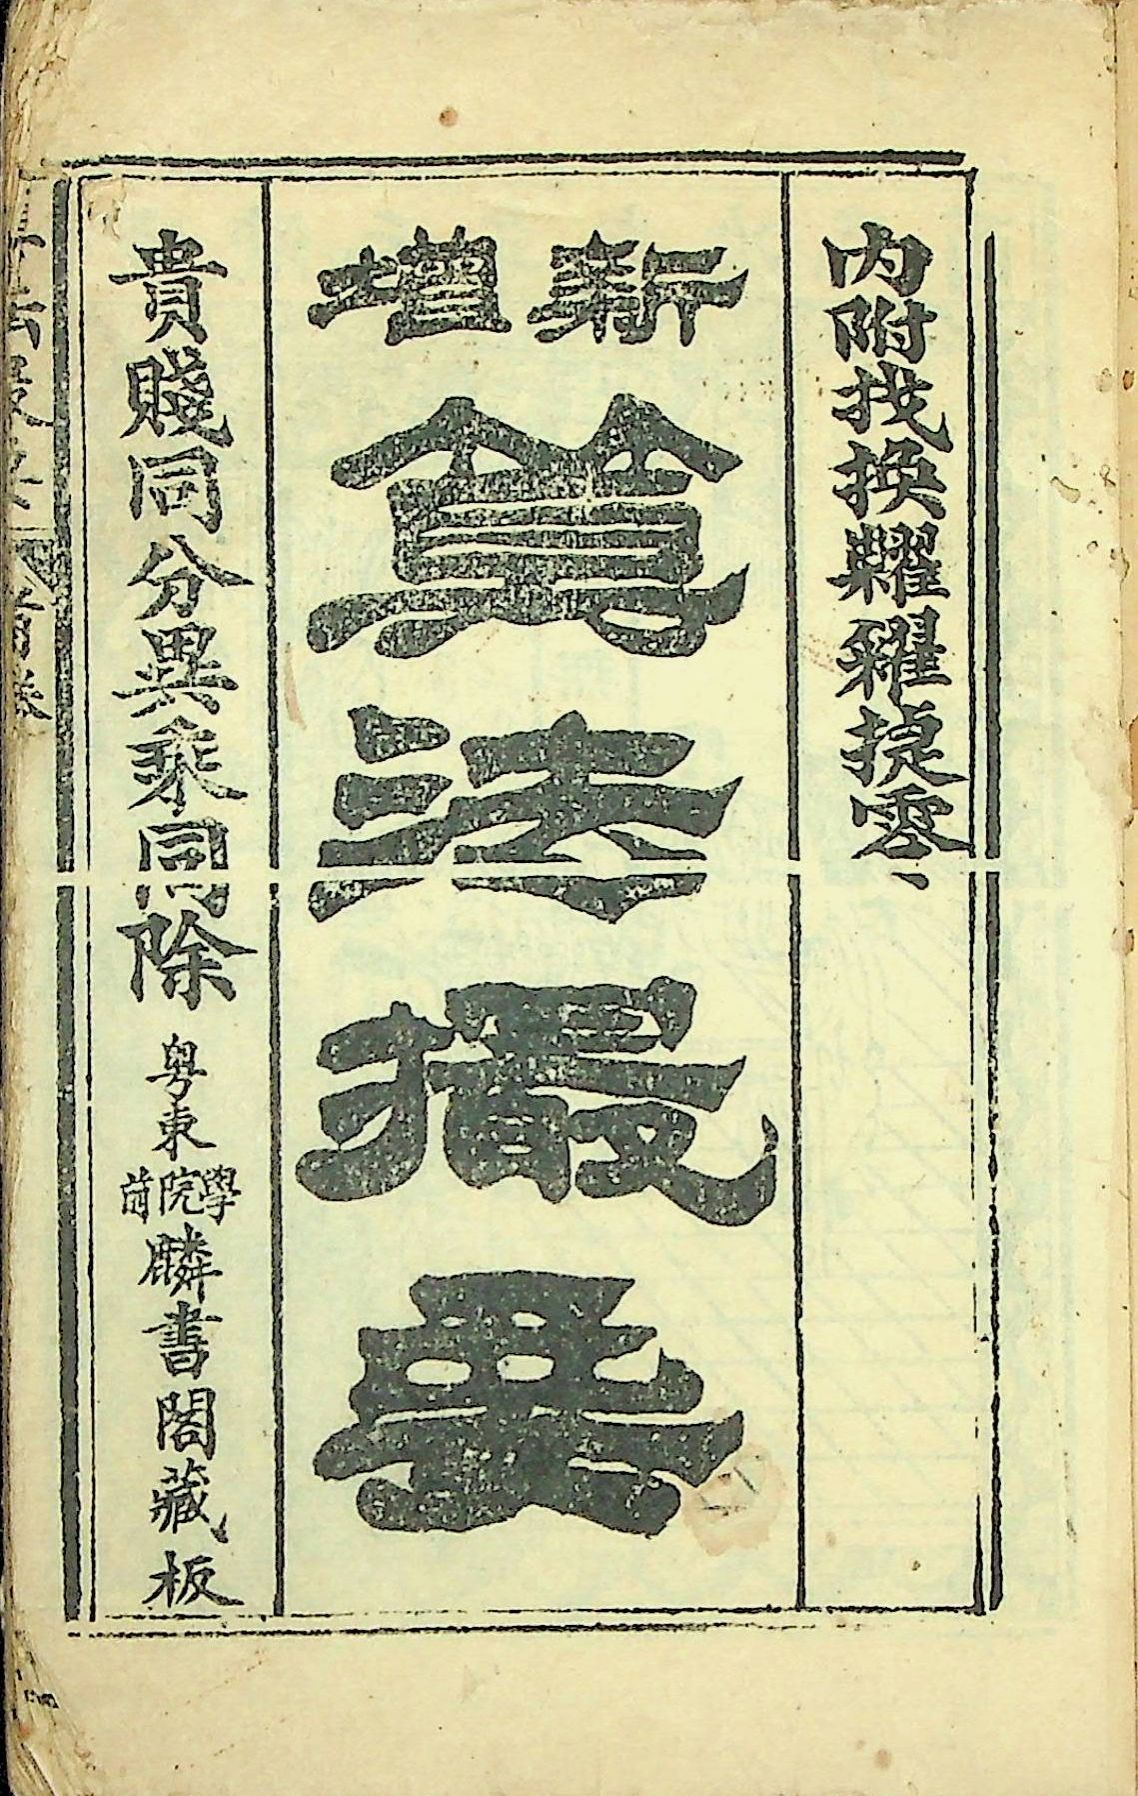 内附找換糶糴捷零、
新增
算法撮要
貴賤同分異乘同除
粵東
學院前
麟書閣藏板